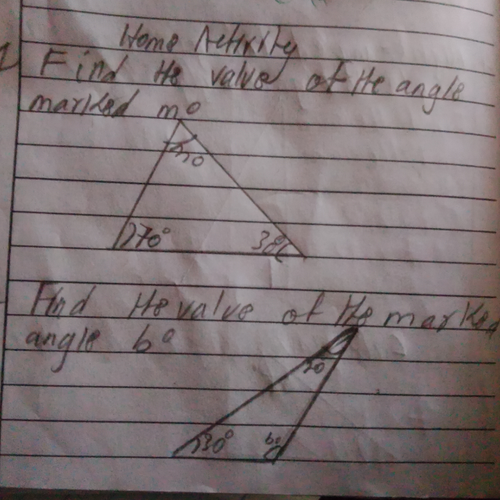 Home Activity
1 Find the value of the angle
marked m°
m°
70°
38°
Find the value of the marked
angle b°
20
30°
b°